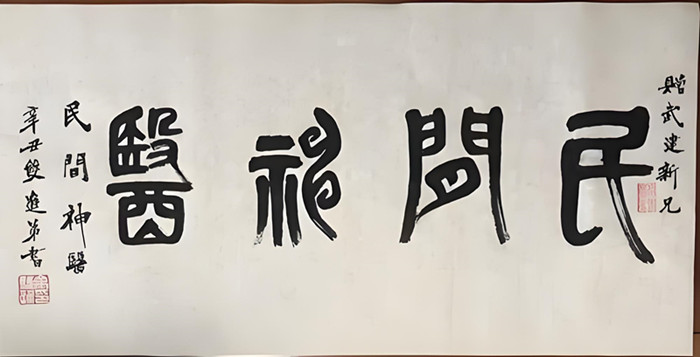 贈武建新兄
民間神醫
民間神醫
辛丑雙進弟書